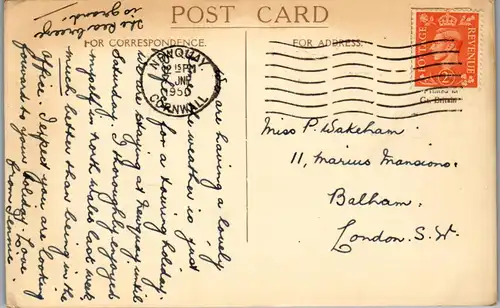 POST CARD
FOR CORRESPONDENCE.
FOR ADDRESS.
The sea breeze
is grand!
We are having a lovely
weather is just
for a touring holiday.
We are staying at Newquay until
Saturday. I thoroughly enjoyed
myself in North Wales last week,
much better than being in the
office. I expect you are looking
forward to your holiday. Love
from Jennie
NEWQUAY
15 PM
JNE
1950
CORNWALL
POSTAGE
REVENUE
Printed in
Gt. Britain
Miss P. Wakeham
11, Marius Mansions.
Balham,
London. S.W.